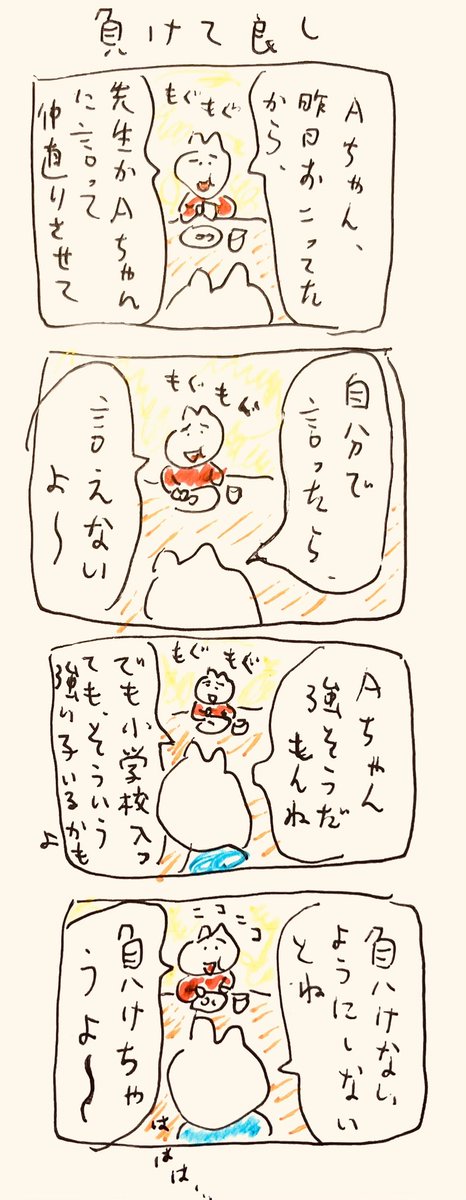 負けて良し
Aちゃん、
昨日おこってた
から、
もぐもぐ
先生がAちゃん
に言って
仲直りさせて
自分で
言ったら、
もぐもぐ
言えない
よ〜
Aちゃん
強そうだ
もんね
もぐもぐ
でも小学校入っ
ても、そういう
強い子いるかも
よ
負けない
ようにしない
とね
ニコニコ
負けちゃ
うよ〜
ははは…